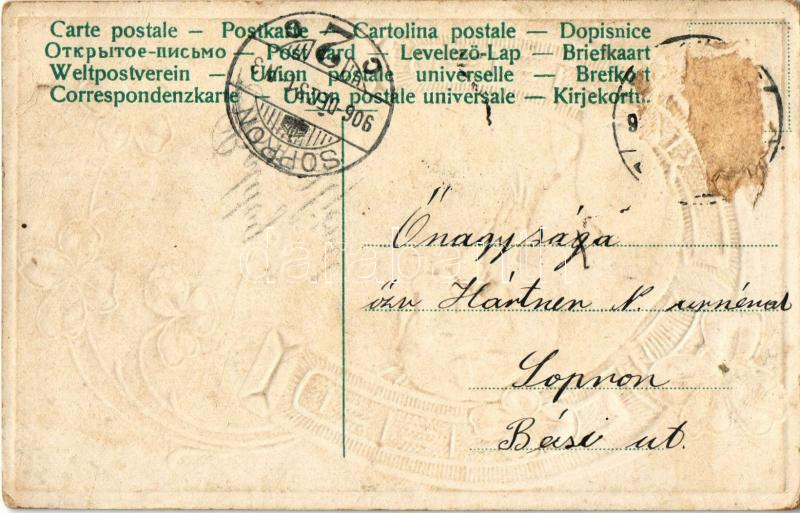 Carte postale — Postkarte — Cartolina postale — Dopisnice
Открытое-письмо — Post card — Levelező-Lap — Briefkaart
Weltpostverein — Union postale universelle — Brefkort
Correspondenzkarte — Union postale universale — Kirjekortti.
SOPRON
906 DEC 31
Őnagysága
özv Hártner N. urnénak
Sopron
Bécsi ut.
darabanth